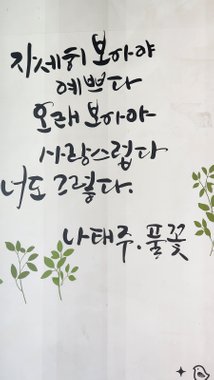 자세히 보아야
예쁘다
오래 보아야
사랑스럽다
너도 그렇다.
나태주. 풀꽃